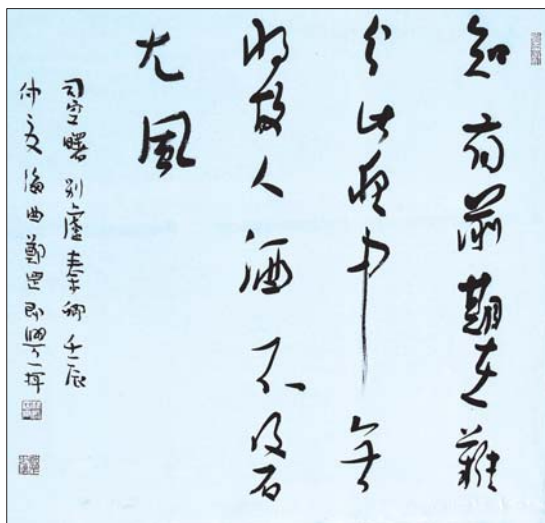 知有前期在難
分此夜中無
將故人酒不及石
尤風
司空曙 別盧秦卿 壬辰
仲夏 海曲鄭罡即興一揮